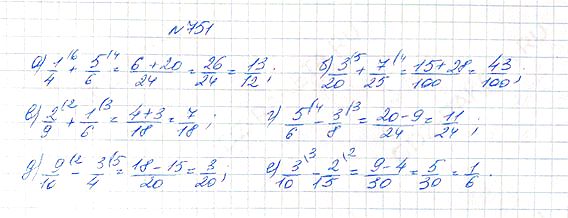 №751
а) 1/4^{\6} + 5/6^{\4} = (6+20)/24 = 26/24 = 13/12; б) 3/20^{\5} + 7/25^{\4} = (15+28)/100 = 43/100;
в) 2/9^{\2} + 1/6^{\3} = (4+3)/18 = 7/18; г) 5/6^{\4} - 3/8^{\3} = (20-9)/24 = 11/24;
д) 9/10^{\2} - 3/4^{\5} = (18-15)/20 = 3/20; е) 3/10^{\3} - 2/15^{\2} = (9-4)/30 = 5/30 = 1/6.